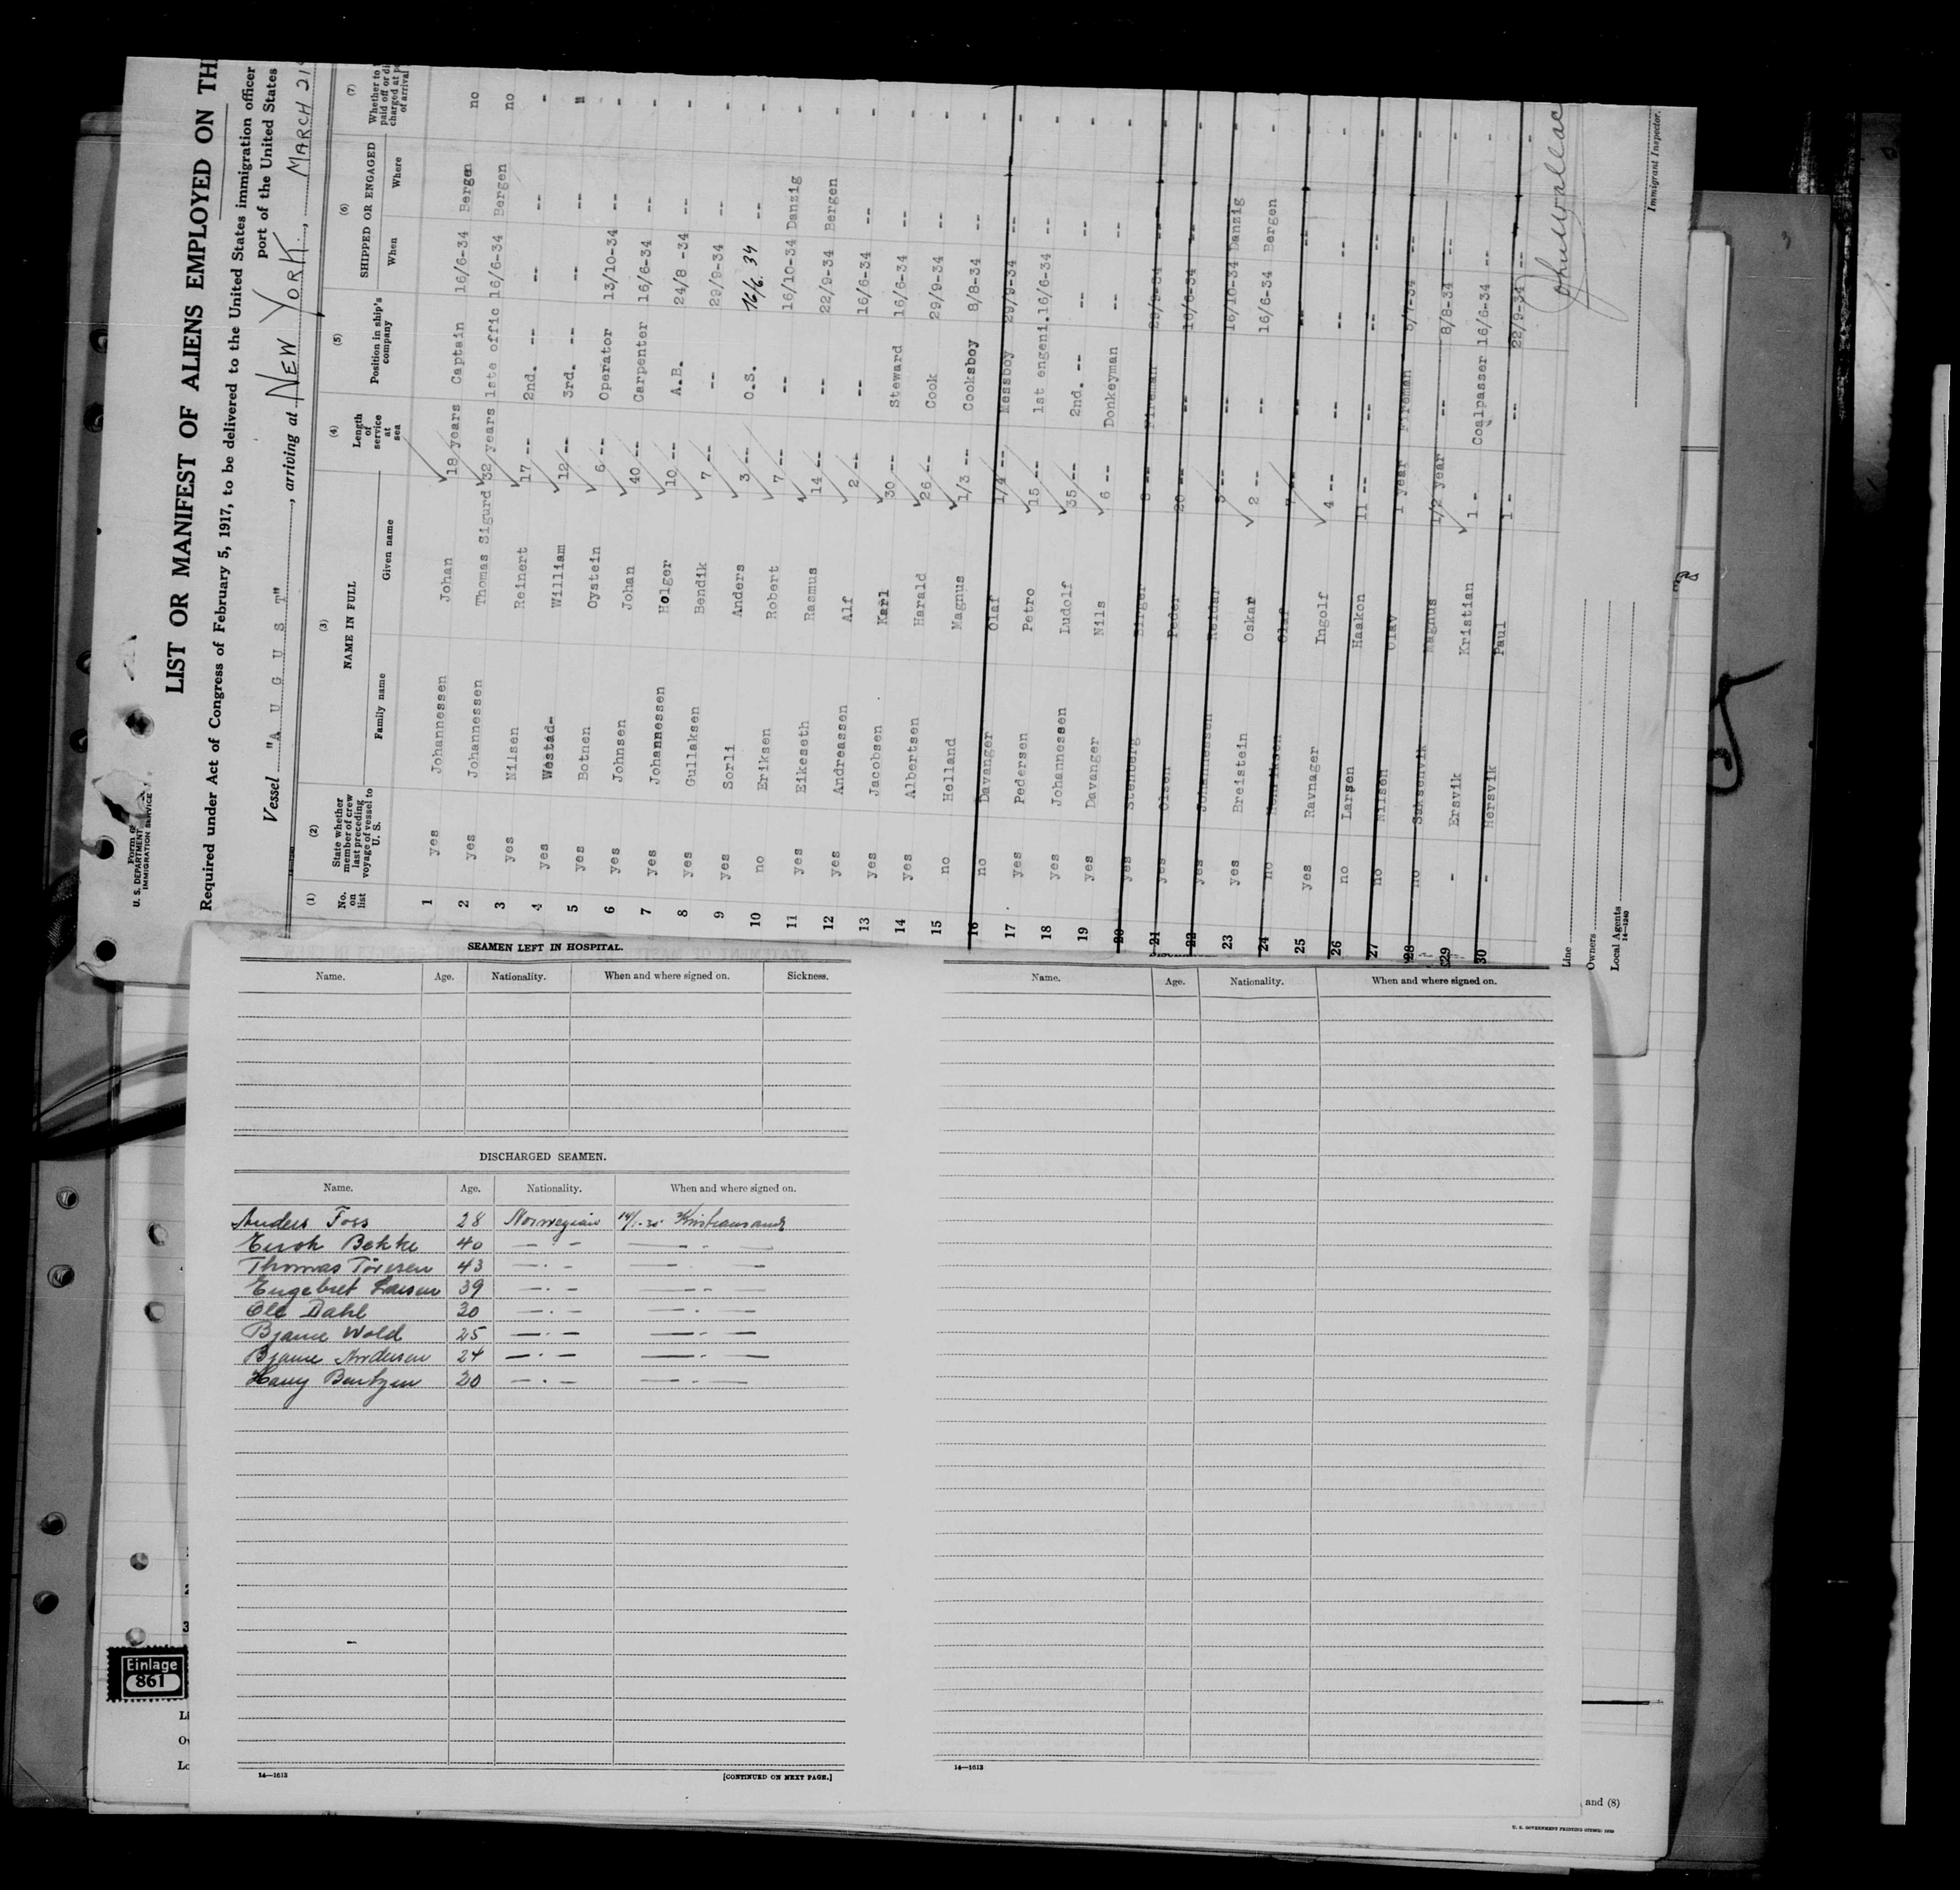 LIST OR MANIFEST OF ALIENS EMPLOYED ON TH
Required under Act of Congress of February 5, 1917, to be delivered to the United States immigration officer
port of the United States
Vessel "A U G U S T", arriving at NEW YORK, MARCH 21
U. S. DEPARTMENT
IMMIGRATION SERVICE
(1) No. on list
(2) State whether member of crew last preceding voyage of vessel to U. S.
(3) NAME IN FULL
Family name Given name
(4) Length of service at sea
(5) Position in ship's company
(6) SHIPPED OR ENGAGED
When Where
(7)
1 yes Johannessen Johan 18 years Captain 16/6-34 Bergen no
2 yes Johannessen Thomas Sigurd 32 years 1ste offic 16/6-34 Bergen no
3 yes Nilsen Reinert 17 -- 2nd. -- -- -- -
4 yes Westad- William 12 -- 3rd. -- -- -- "
5 yes Botnen Oystein 6 -- Operator 13/10-34 -- -
6 yes Johnsen Johan 40 -- Carpenter 16/6-34 -- -
7 yes Johannessen Holger 10 -- A.B. 24/8 -34 -- -
8 yes Gullaksen Bendik 7 -- -- 29/9-34 -- -
9 yes Sorli Anders 3 -- O.S. 16/6. 34 -- -
10 no Eriksen Robert 7 -- -- 16/10-34 Danzig -
11 yes Eikeseth Rasmus 14 -- -- 22/9-34 Bergen -
12 yes Andreassen Alf 2 -- -- 16/6-34 -- -
13 yes Jacobsen Karl 30 -- Steward 16/6-34 -- -
14 yes Albertsen Harald 26 -- Cook 29/9-34 -- -
15 no Helland Magnus 1/3 -- Cooksboy 8/8-34 -- -
16 no Davanger Olaf 1/4 -- Messboy 29/9-34 -- -
17 yes Pedersen Petro 15 -- 1st engeni. 16/6-34 -- -
18 yes Johannessen Ludolf 35 -- 2nd. -- -- -- -
19 yes Davanger Nils 6 -- Donkeyman -- -- -
20 yes Stenberg Birger 8 -- Fireman 29/9-34 -- -
21 yes Olsen Peder 20 -- -- 16/6-34 -- -
22 yes Johannessen Reidar -- -- 16/10-34 Danzig -
23 yes Breistein Oskar 2 -- -- 16/6-34 Bergen -
24 no Henriksen Olaf 7 -- -- -- -- -
25 yes Ravnager Ingolf 4 -- -- -- -- -
26 no Larsen Haakon 11 -- -- -- -
27 no Nilsen Olav 1 year Fireman 5/7-34 -- -
28 no Saksenvik Magnus 1/2 year -- 8/8-34 -- -
29 - Ersvik Kristian 1 - Coalpasser 16/6-34 -- -
30 - Hersvik Paul 1 - -- 22/9-34 -- -
Line
Owners
Local Agents
14—1240
Immigrant Inspector.
SEAMEN LEFT IN HOSPITAL.
Name. Age. Nationality. When and where signed on. Sickness.
DISCHARGED SEAMEN.
Name. Age. Nationality. When and where signed on.
Anders Foss 28 Norwegian Kristiansand
Bekke 40 — · — — · —
Thomas Töresen 43 — · — — · —
Engebret Larsen 39 — · — — · —
Ole Dahl 30 — · — — · —
Bjarne Wold 25 — · — — · —
Bjarne Andersen 24 — · — — · —
Harry Bentzen 20 — · — — · —
14—1613 [CONTINUED ON NEXT PAGE.]
Name. Age. Nationality. When and where signed on.
14—1613
Einlage
861
and (8)
U. S. GOVERNMENT PRINTING OFFICE